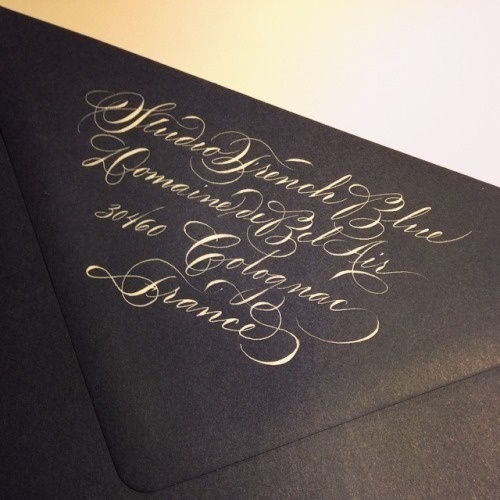 Studio French Blue
Domaine di Bel Air
30460 Colognac
France